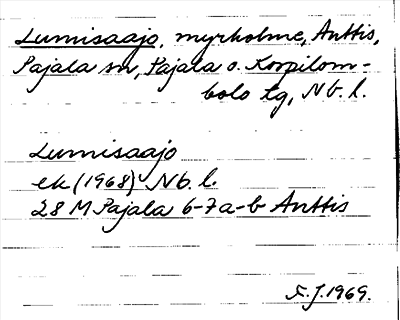 Lumisaajo, myrholme, Anttis,
Pajala sn, Pajala o. Korpilom-
bolo tg, Nb. l.
Lumisaajo
ek (1968) Nb. l.
28 M Pajala 6-7a-b Anttis
S.J. 1969.